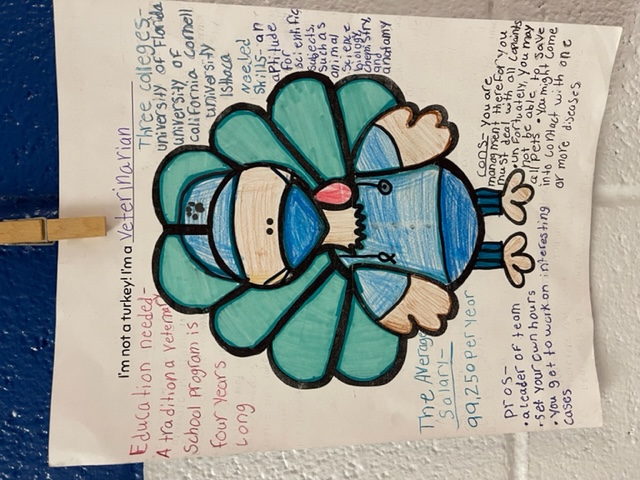 I'm not a turkey! I'm a Veterinarian
Education needed-
A traditiona veterinary
School Program is
four years
long
Three colleges-
university of Florida
university of
california Cornell
university
Ishaca
Needed
Skills- an
aptitude
for
scientific
subjects,
such as
animal
science
biology,
chemistry,
and
anatomy
The Average
Salary-
99,250 Per year
cons- you are
managment therefor you
must deal with all
• unfortunately, you may
not be able to save
all pets • You might come
into contact with one
or more diseases
pros-
• a leader of team
• set your own hours
• You get to work on interesting
cases